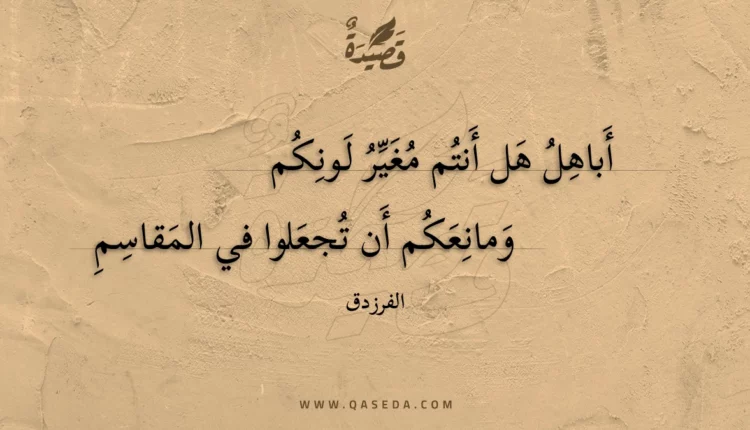 قَصِيدَةٌ
أَباهِلُ هَل أَنتُم مُغَيِّرُ لَونِكُم
وَمانِعَكُم أَن تُجعَلوا في المَقاسِمِ
الفرزدق
WWW.QASEDA.COM